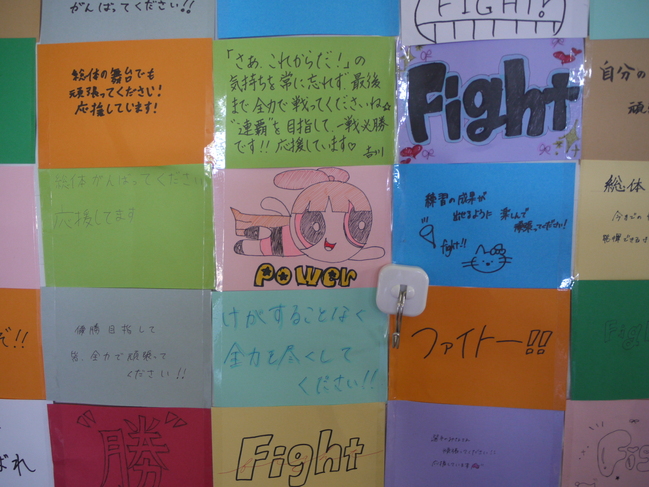 がんばってください!!
FIGHT!
総体の舞台でも
頑張ってください!
応援しています!
「さぁ、これからだ!」の
気持ちを常に忘れず、最後
まで全力で戦ってくださいね☆
"連覇"を目指して、一戦必勝
です!!応援しています♡
吉川
Fight
自分の
総体がんばってください
応援してます
power
練習の成果が
出せるように 楽しんで
頑張ってください!
fight!!
総体
優勝目指して
皆 全力で頑張って
ください!!
けがすることなく
全力を尽くして
ください!!
ファイトー!!
Fight
ばれ
勝
Fight
頑張ってください!!
応援しています
Fight